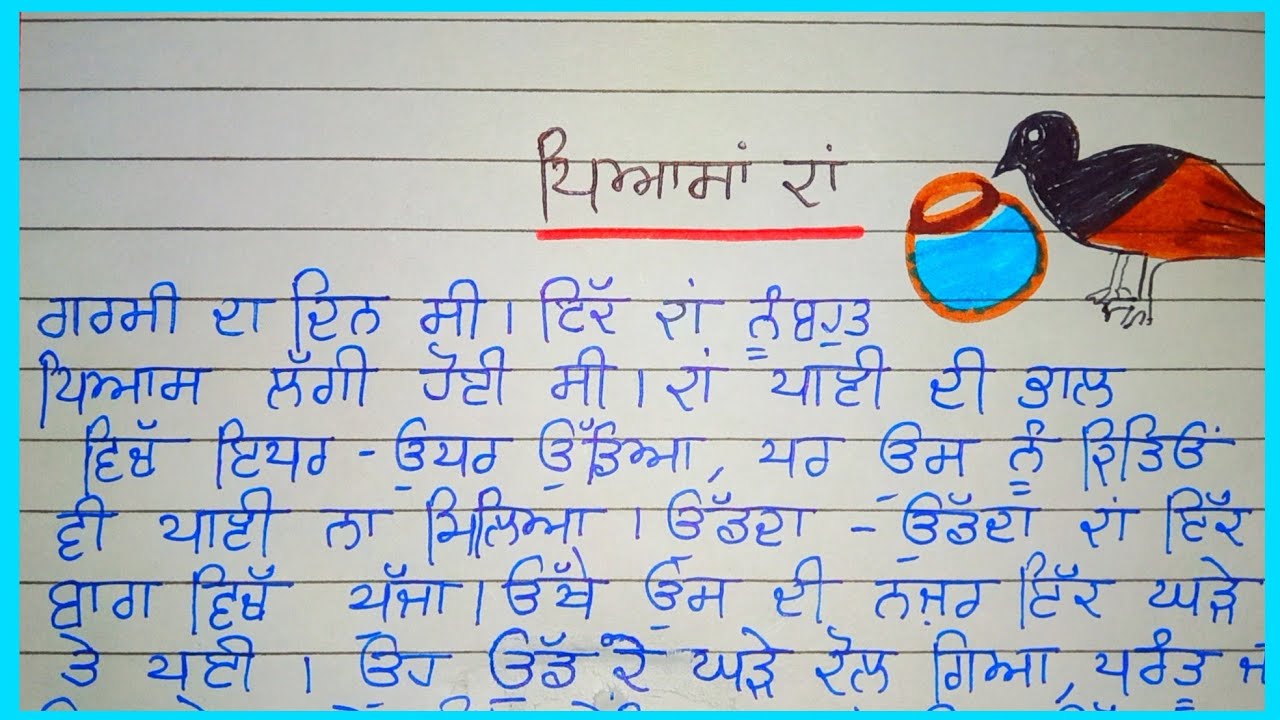 ਪਿਆਸਾਂ ਕਾਂ
ਗਰਮੀ ਦਾ ਦਿਨ ਸੀ। ਇੱਕ ਕਾਂ ਨੂੰ ਬਹੁਤ
ਪਿਆਸ ਲੱਗੀ ਹੋਈ ਸੀ। ਕਾਂ ਪਾਣੀ ਦੀ ਭਾਲ
ਵਿਚੱ ਇਧਰ - ਉਧਰ ਉੱਡਿਆ, ਪਰ ਉਸ ਨੂੰ ਕਿਤਿਓਂ
ਵੀ ਪਾਣੀ ਨਾ ਮਿਲਿਆ। ਉੱਡਦਾ - ਉੱਡਦਾ ਕਾਂ ਇੱਕ
ਬਾਗ ਵਿਚੱ ਪੁੱਜਾ। ਓੱਥੇ ਉਸ ਦੀ ਨਜ਼ਰ ਇੱਕ ਘੜੇ
ਤੇ ਪਈ। ਉਹ ਉੱਡ ਕੇ ਘੜੇ ਕੋਲ ਗਿਆ, ਪਰੰਤੂ